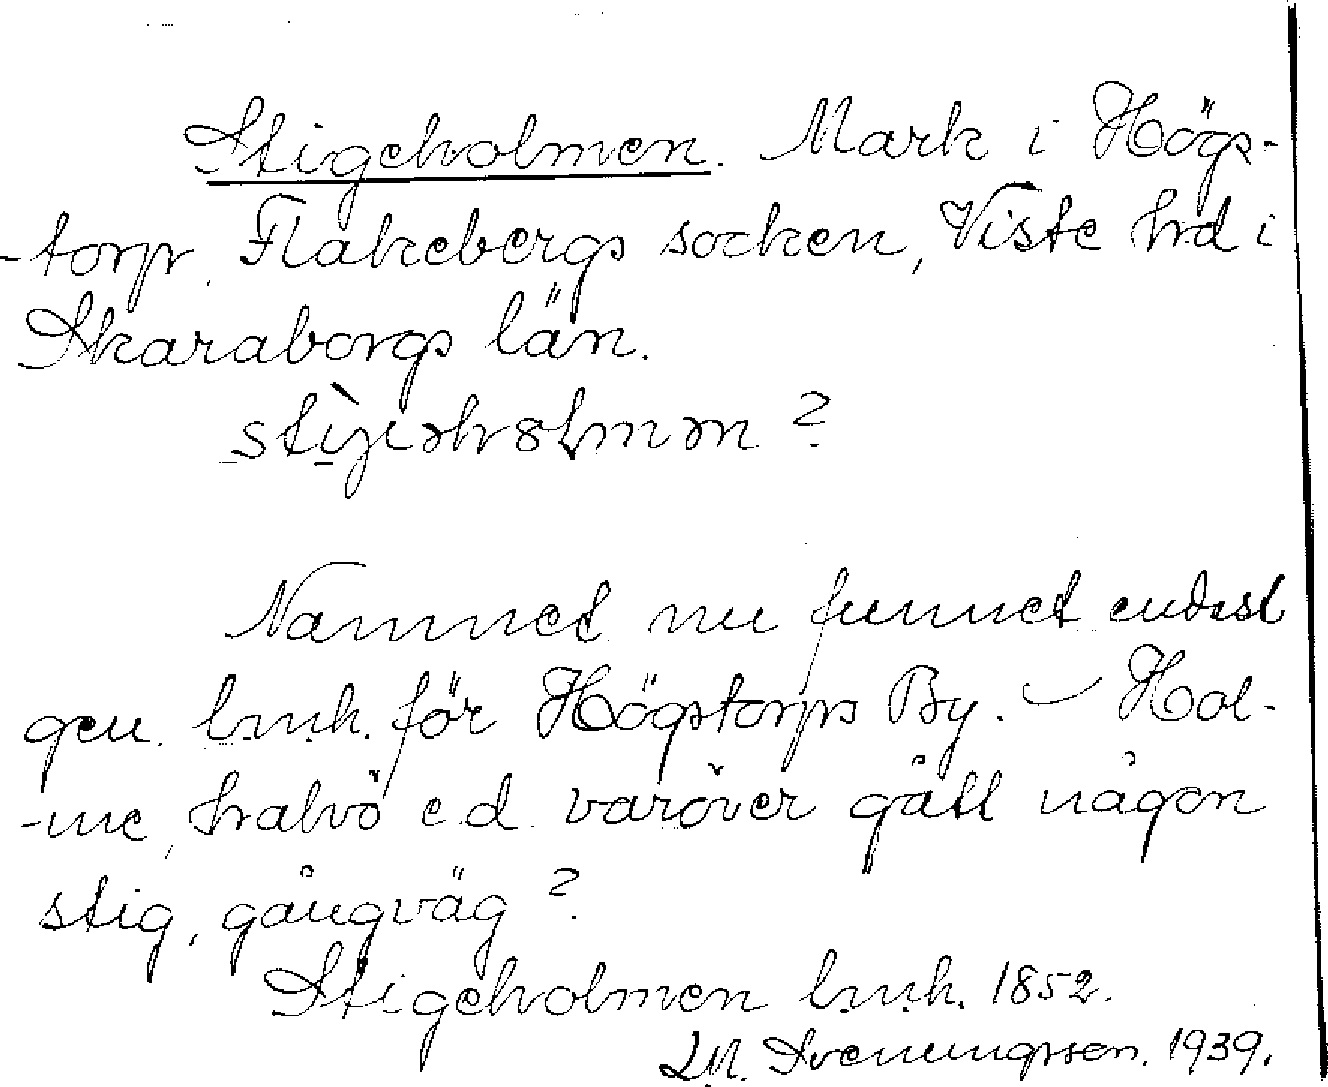 Stigeholmen. Mark i Högs-
-torp, Flakebergs socken, Viste hrd i
Skaraborgs län.
Namnet nu funnet endast
gen. lmh. för Högstorps By. – Hol-
-me, halvö e.d. varöver gått någon
stig, gångväg?
Stigeholmen lmh. 1852.
Sveningsson. 1939.